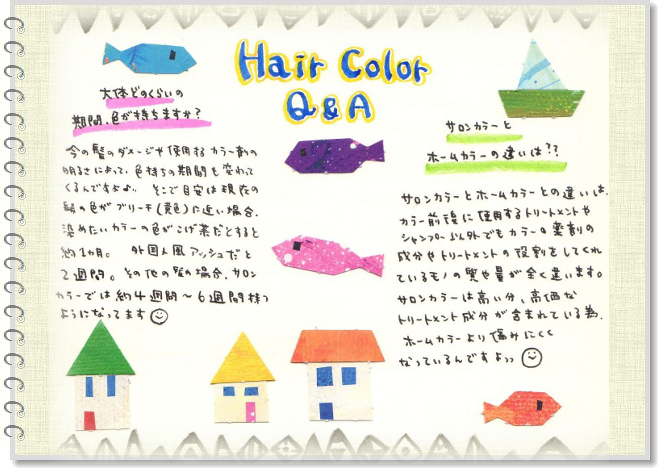 Hair Color
Q&A
大体どのくらいの
期間、色が持ちますか?
今の髪のダメージや使用するカラー剤の
明るさによって、色持ちの期間も変わって
くるんですよが、 そこで目安は現在の
髪の色がブリーチ(黄色)に近い場合、
染めたいカラーの色がこげ茶だとすると
約1カ月。 外国人風アッシュだと
2週間。その他の髪の場合、サロン
カラーでは約4週間〜6週間持つ
ようになってます
サロンカラーと
ホームカラーの違いは??
サロンカラーとホームカラーとの違いは、
カラー前後に使用するトリートメントや
シャンプー以外でもカラーの薬剤の
成分やトリートメントの役割をしてくれ
ているモノの質や量が全く違います。
サロンカラーは高い分、高価な
トリートメント成分が含まれている為、
ホームカラーより傷みにくく
なっているんですよっっ